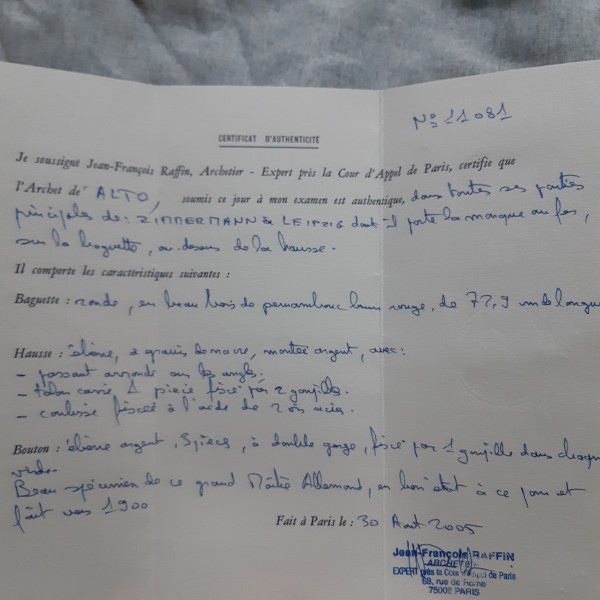 N° 11081
CERTIFICAT D'AUTHENTICITÉ
Je soussigné Jean-François Raffin, Archetier - Expert près la Cour d'Appel de Paris, certifie que
l'Archet de ALTO, soumis ce jour à mon examen est authentique, dans toutes ses parties
principales de: ZIMMERMANN à LEIPZIG dont il porte la marque au fer,
sur la baguette, au-dessus de la hausse.
Il comporte les caractéristiques suivantes :
Baguette : ronde, en beau bois de pernambouc brun rouge, de 72,9
Hausse : ébène, 2 grains de nacre, montée argent, avec:
- passant arrondi sur les angles.
- talon carré 1 pièce fixé par 2 goupilles.
- coulisse fixée à l'aide de 2 vis acier.
Bouton : ébène argent, 3 pièces, à double gorge, fixé par 1 goupille dans chaque
Beau spécimen de ce grand Maître Allemand, en bon état à ce jour et
fait vers 1900
Fait à Paris le : 30 Août 2005
Jean-François RAFFIN
ARCHETIER
EXPERT près la Cour d'Appel de Paris
68, rue de Rome
75008 PARIS